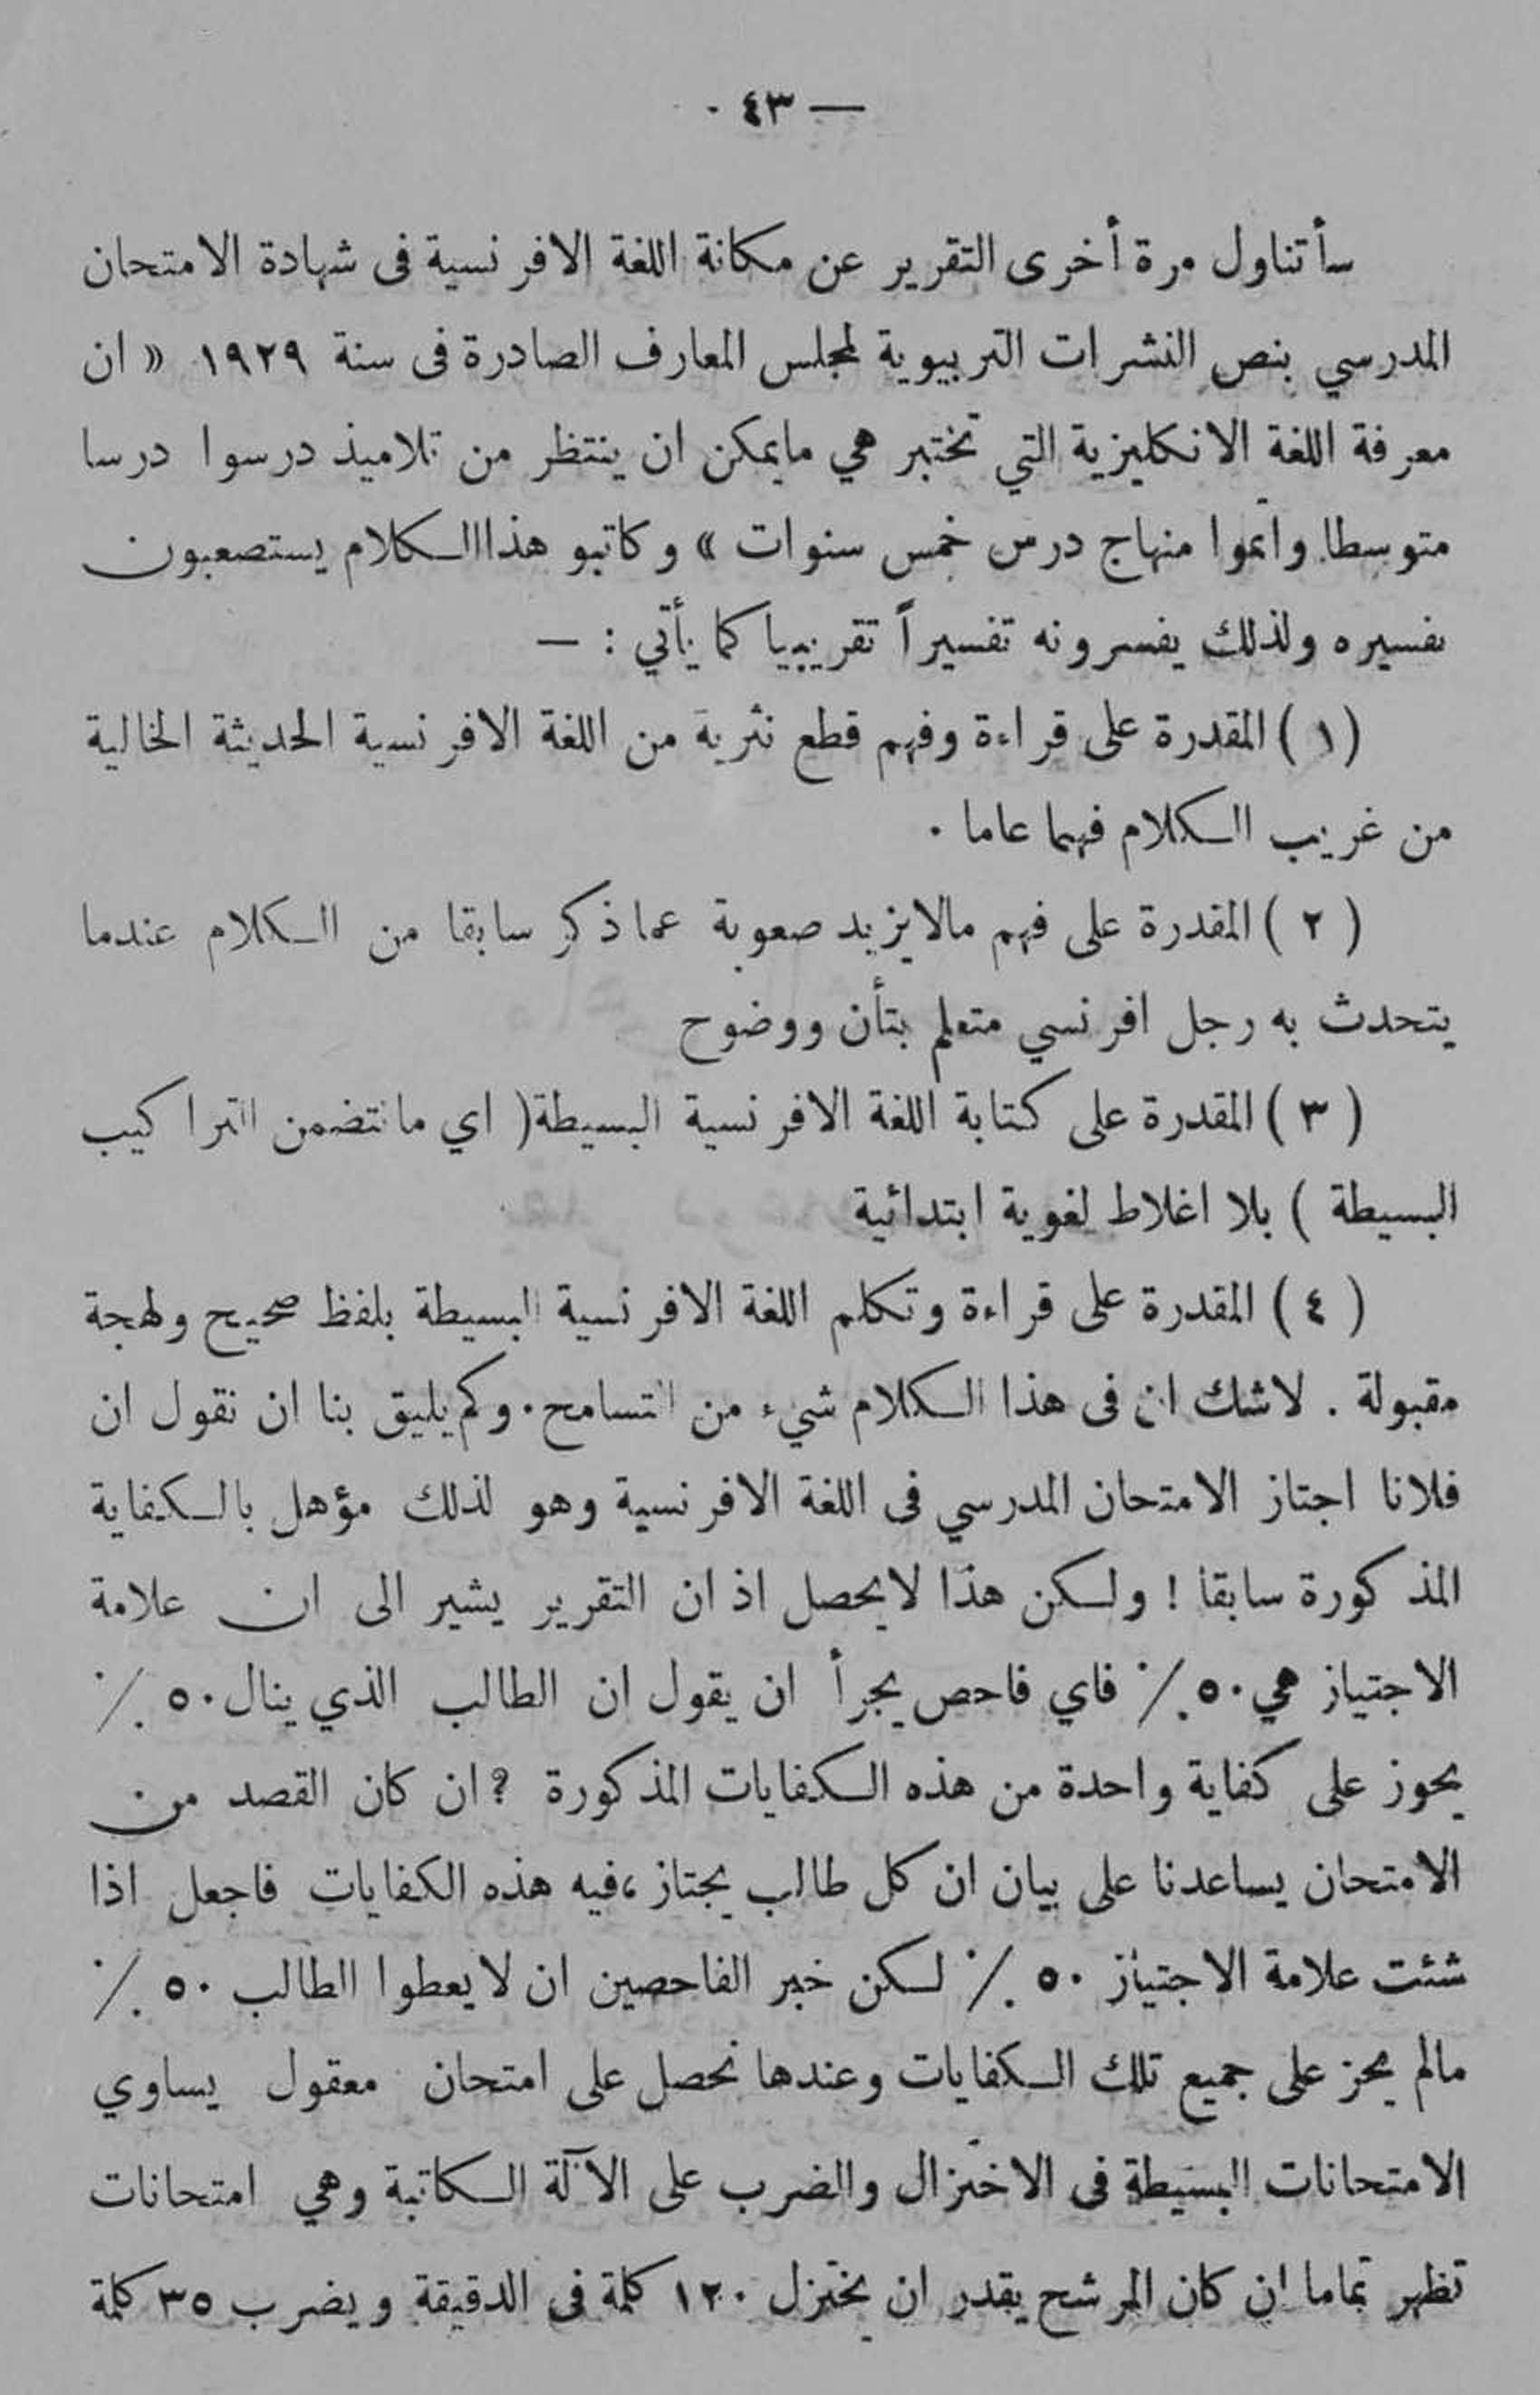 — ٤٣ ·
سأتناول مرة أخرى التقرير عن مكانة اللغة الافرنسية فى شهادة الامتحان
المدرسي بنص النشرات التربيوية لمجلس المعارف الصادرة فى سنة ١٩٢٩ « ان
معرفة اللغة الانكليزية التي تختبر هي مايمكن ان ينتظر من تلاميذ درسوا درسا
متوسطا واتموا منهاج درس خمس سنوات » وكاتبو هذا الكلام يستصعبون
تفسيره ولذلك يفسرونه تفسيراً تقريبيا كما يأتي : —
( ١ ) المقدرة على قراءة وفهم قطع نثرية من اللغة الافرنسية الحديثة الخالية
من غريب الكلام فهما عاما .
( ٢ ) المقدرة على فهم مالايزيد صعوبة عماذكر سابقا من الكلام عندما
يتحدث به رجل افرنسي متعلم بتأن ووضوح
( ٣ ) المقدرة على كتابة اللغة الافرنسية البسيطة( اي ماتتضمن التراكيب
البسيطة ) بلا اغلاط لغوية ابتدائية
( ٤ ) المقدرة على قراءة وتكلم اللغة الافرنسية البسيطة بلفظ صحيح ولهجة
مقبولة . لاشك ان فى هذا الكلام شيء من التسامح. وكم يليق بنا ان نقول ان
فلانا اجتاز الامتحان المدرسي فى اللغة الافرنسية وهو لذلك مؤهل بالكفاية
المذكورة سابقا ! ولكن هذا لايحصل اذ ان التقرير يشير الى ان علامة
الاجتياز هي ٥٠ ٪ فاي فاحص يجرأ ان يقول ان الطالب الذي ينال ٥٠ ٪
يحوز على كفاية واحدة من هذه الكفايات المذكورة ؟ ان كان القصد من
الامتحان يساعدنا على بيان ان كل طالب يجتاز، فيه هذه الكفايات فاجعل اذا
شئت علامة الاجتياز ٥٠ ٪ لكن خبر الفاحصين ان لايعطوا الطالب ٥٠ ٪
مالم يحز على جميع تلك الكفايات وعندها نحصل على امتحان معقول يساوي
الامتحانات البسيطة فى الاختزال والضرب على الآلة الكاتبة وهي امتحانات
تظهر تماما ان كان المرشح يقدر ان يختزل ١٢٠ كلمة فى الدقيقة ويضرب ٣٥ كلمة